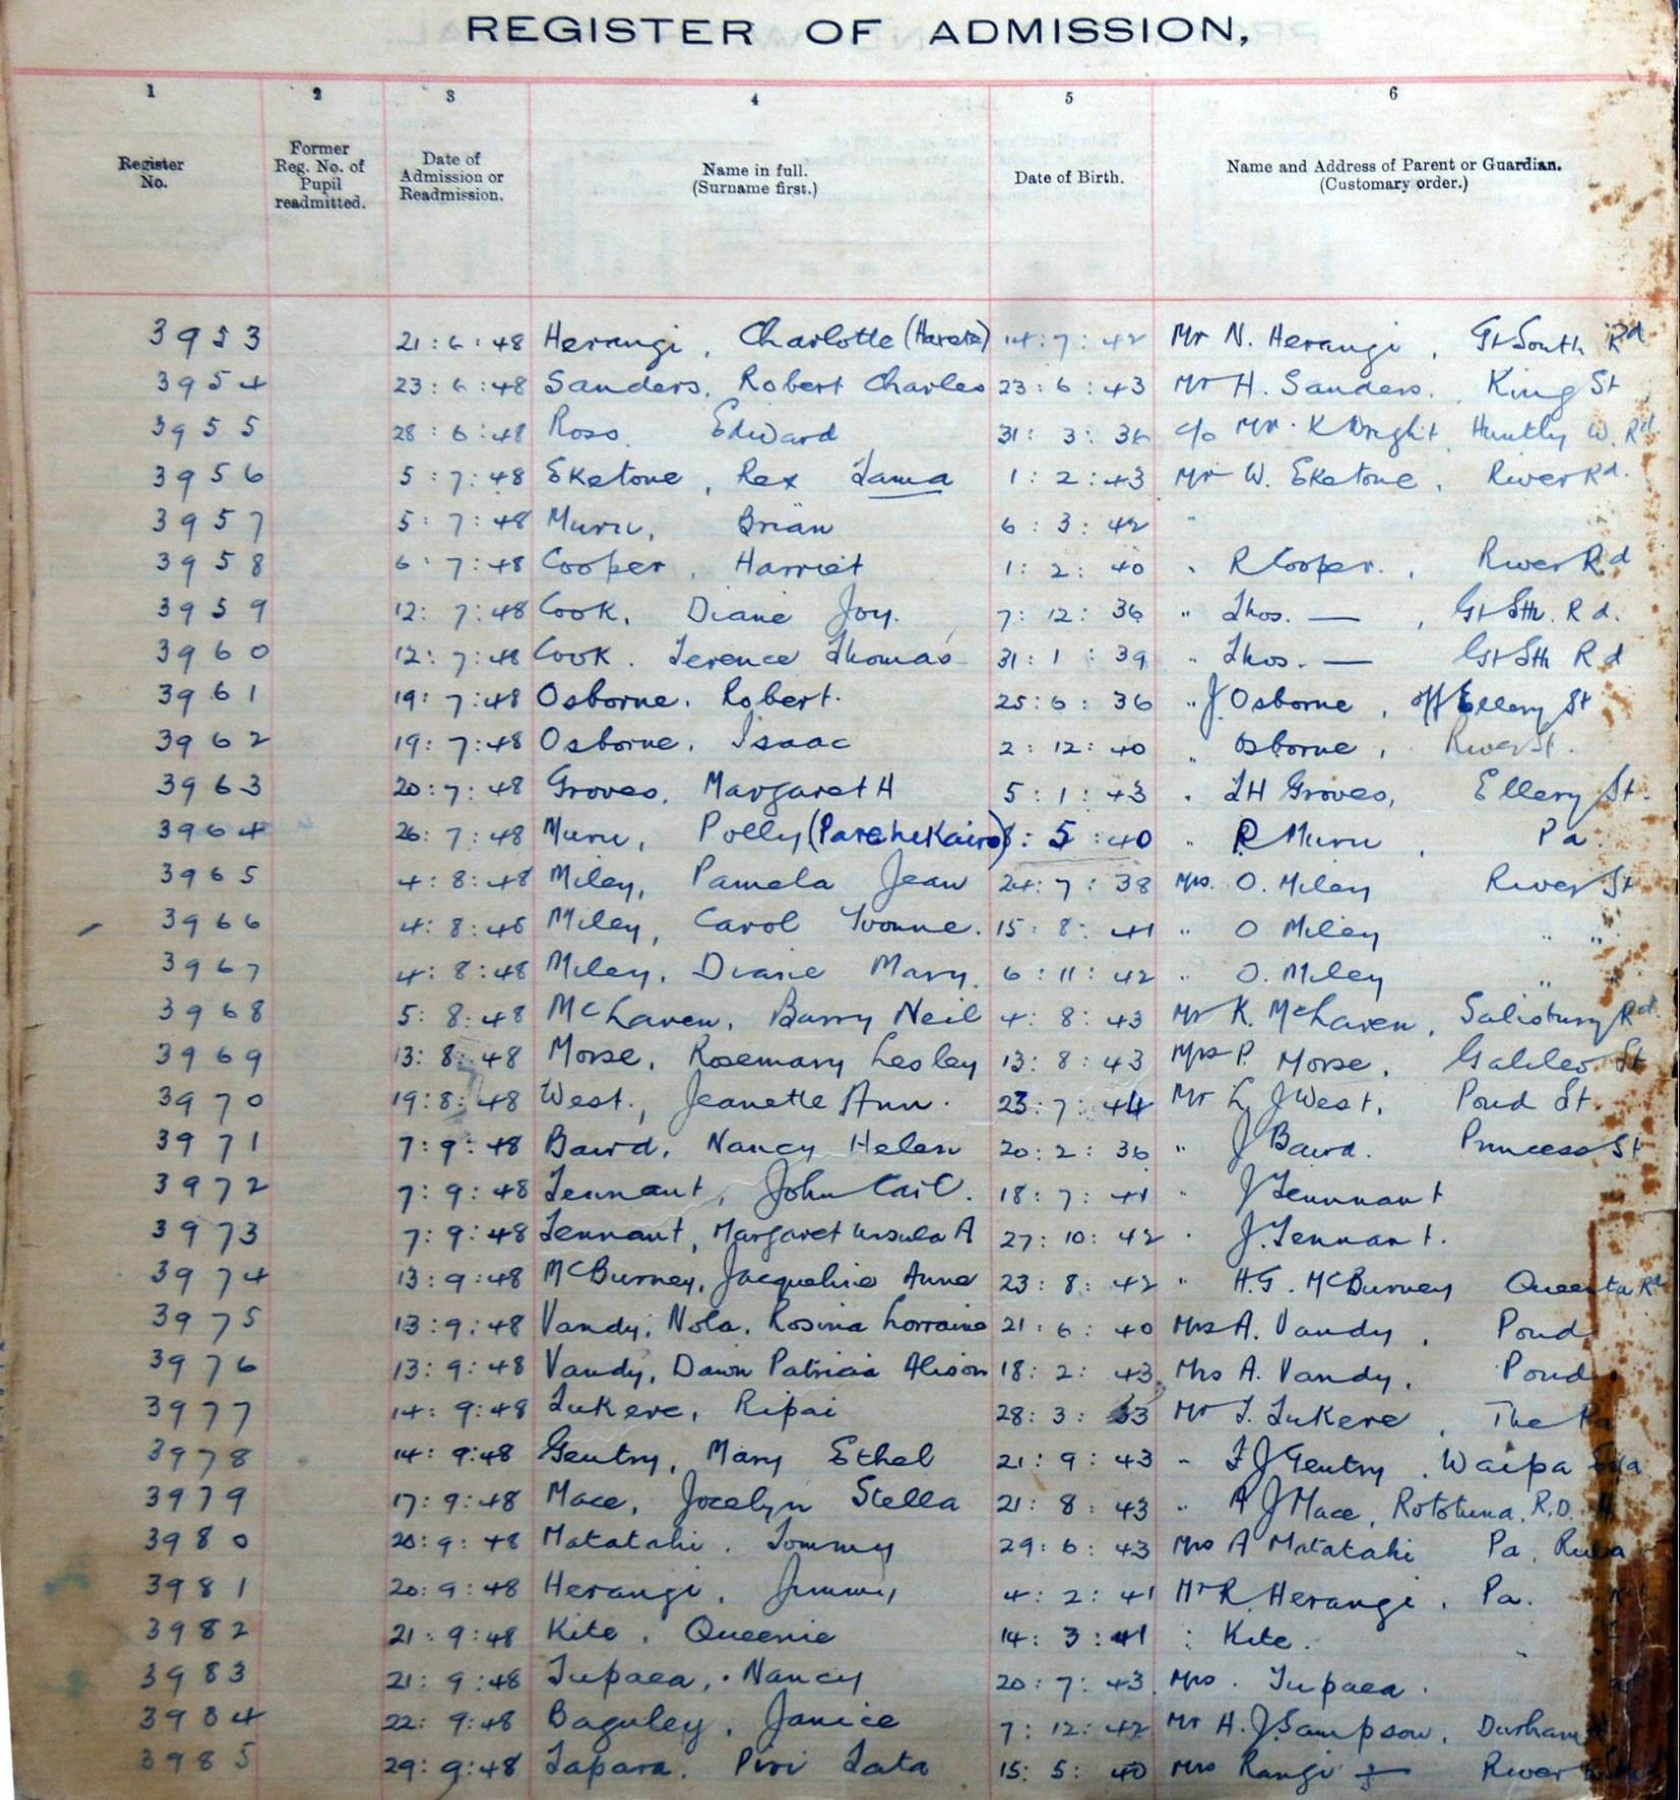 REGISTER OF ADMISSION,
1 2 3 4 5 6
Register No. Former Reg. No. of Pupil readmitted. Date of Admission or Readmission. Name in full. (Surname first.) Date of Birth. Name and Address of Parent or Guardian. (Customary order.)
3953 21:6:48 Herangi, Charlotte (Hareta) 14:7:42 Mr N. Herangi, Gt South Rd
3954 23:6:48 Sanders, Robert Charles 23:6:43 Mr H. Sanders. King St
3955 28:6:48 Ross. Edward 31:3:36 c/o Mr. K Wright, Huntly W. Rd.
3956 5:7:48 Eketone, Rex Tama 1:2:43 Mr W. Eketone, River Rd.
3957 5:7:48 Muru, Brian 6:3:42 "
3958 6:7:48 Cooper, Harriet 1:2:40 " R Cooper., River Rd
3959 12:7:48 Cook, Diane Joy. 7:12:36 " Thos. —, Gt Sth. Rd.
3960 12:7:48 Cook. Terence Thomas 31:1:39 " Thos. — Gt Sth Rd
3961 19:7:48 Osborne, Robert. 25:6:36 " J Osborne, off Ellery St
3962 19:7:48 Osborne, Isaac 2:12:40 " Osborne, River St.
3963 20:7:48 Groves, Margaret H 5:1:43 " TH Groves, Ellery St.
3964 26:7:48 Muru, Polly 5:40 " R Muru, Pa.
3965 4:8:48 Miley, Pamela Jean 24:7:38 Mrs. O. Miley River St
3966 4:8:48 Miley, Carol Yvonne. 15:8:41 " O Miley " "
3967 4:8:48 Miley, Diane Mary. 6:11:42 " O. Miley " "
3968 5:8:48 McLaven, Barry Neil 4:8:43 Mr K. McLaven, Salisbury Rd.
3969 13:8:48 Morse, Rosemary Lesley 13:8:43 Mrs P. Morse, Galileo St
3970 19:8:48 West, Jeanette Ann. 23:7:44 Mr L J West, Pond St.
3971 7:9:48 Baird, Nancy Helen 20:2:36 " J Baird. Princess St
3972 7:9:48 Tennant, John Cail. 18:7:41 " J Tennnant
3973 7:9:48 Tennant, Margaret Ursula A 27:10:42 " J. Tennant.
3974 13:9:48 McBurney, Jacqueline Anne 23:8:42 " H.G. McBurney Rd
3975 13:9:48 Vandy, Nola, Rosina Lorraine 21:6:40 Mrs A. Vandy, Pond
3976 13:9:48 Vandy, Dawn Patricia Alison 18:2:43 Mrs A. Vandy, Pond
3977 14:9:48 Tukere, Ripai 28:3:33 Mr T. Tukere, The Pa
3978 14:9:48 Gentry, Mary Ethel 21:9:43 " F J Gentry, Waipa
3979 17:9:48 Mace, Jocelyn Stella 21:8:43 " A J Mace, Rototuna, R.D.
3980 20:9:48 Matatahi, Tommy 29:6:43 Mrs A Matatahi Pa,
3981 20:9:48 Herangi, Jimmy 4:2:41 Mr R. Herangi, Pa.
3982 21:9:48 Kite, Queenie 14:3:41 : Kite.
3983 21:9:48 Tupaea, Nancy 20:7:43 Mrs. Tupaea.
3984 22:9:48 Baguley, Janice 7:12:42 Mr H.J. Sampson, Durham
3985 29:9:48 Tapara. Piri Tata 15:5:40 Mrs Rangi River